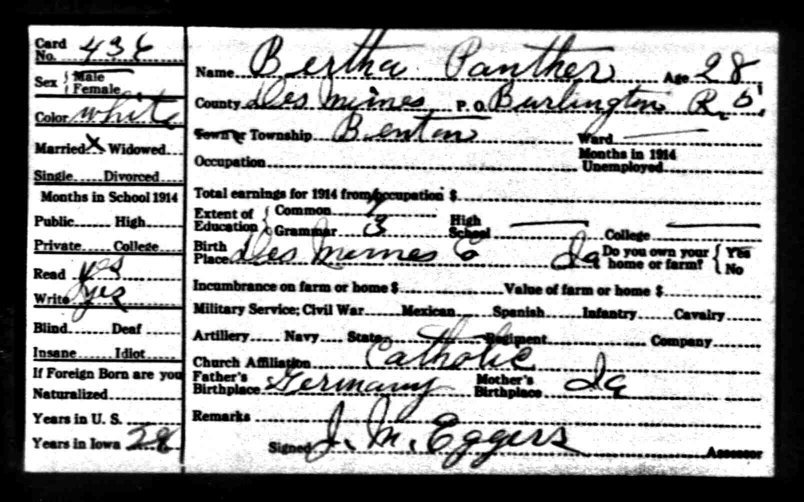 Card No. 436
Sex { Male
Female
Color white
Married X Widowed
Single Divorced
Months in School 1914
Public High
Private College
Read yes
Write yes
Blind Deaf
Insane Idiot
If Foreign Born are you
Naturalized
Years in U. S.
Years in Iowa 28
Name Bertha Panther Age 28
County Des Mines P. O. Burlington R.
Town or Township Benton Ward
Occupation Months in 1914 Unemployed
Total earnings for 1914 from occupation $
Extent of Education { Common High School College
Grammar 3
Birth Place Des Mines Co Ia Do you own your home or farm? { Yes
No
Incumbrance on farm or home $ Value of farm or home $
Military Service; Civil War Mexican Spanish Infantry Cavalry
Artillery Navy State Regiment Company
Church Affiliation Catholic
Father's Birthplace Germany Mother's Birthplace Ia
Remarks
Signed J. M. Eggers Assessor